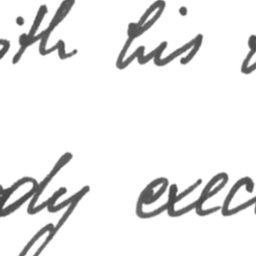 with his
ody exec